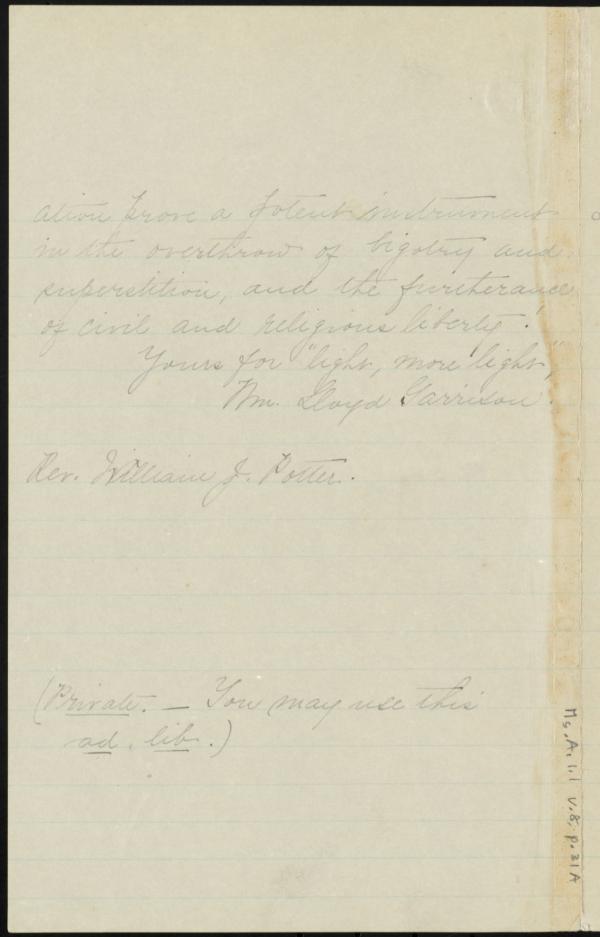 ation prove a potent instrument
in the overthrow of bigotry and
superstition, and the furtherance
of civil and religious liberty!
Yours for "light, more light,"
Wm. Lloyd Garrison.
Rev. William J. Potter.
(Private. — You may use this
ad. lib.)
Ms. A. 1.1 v. 8, p. 31A